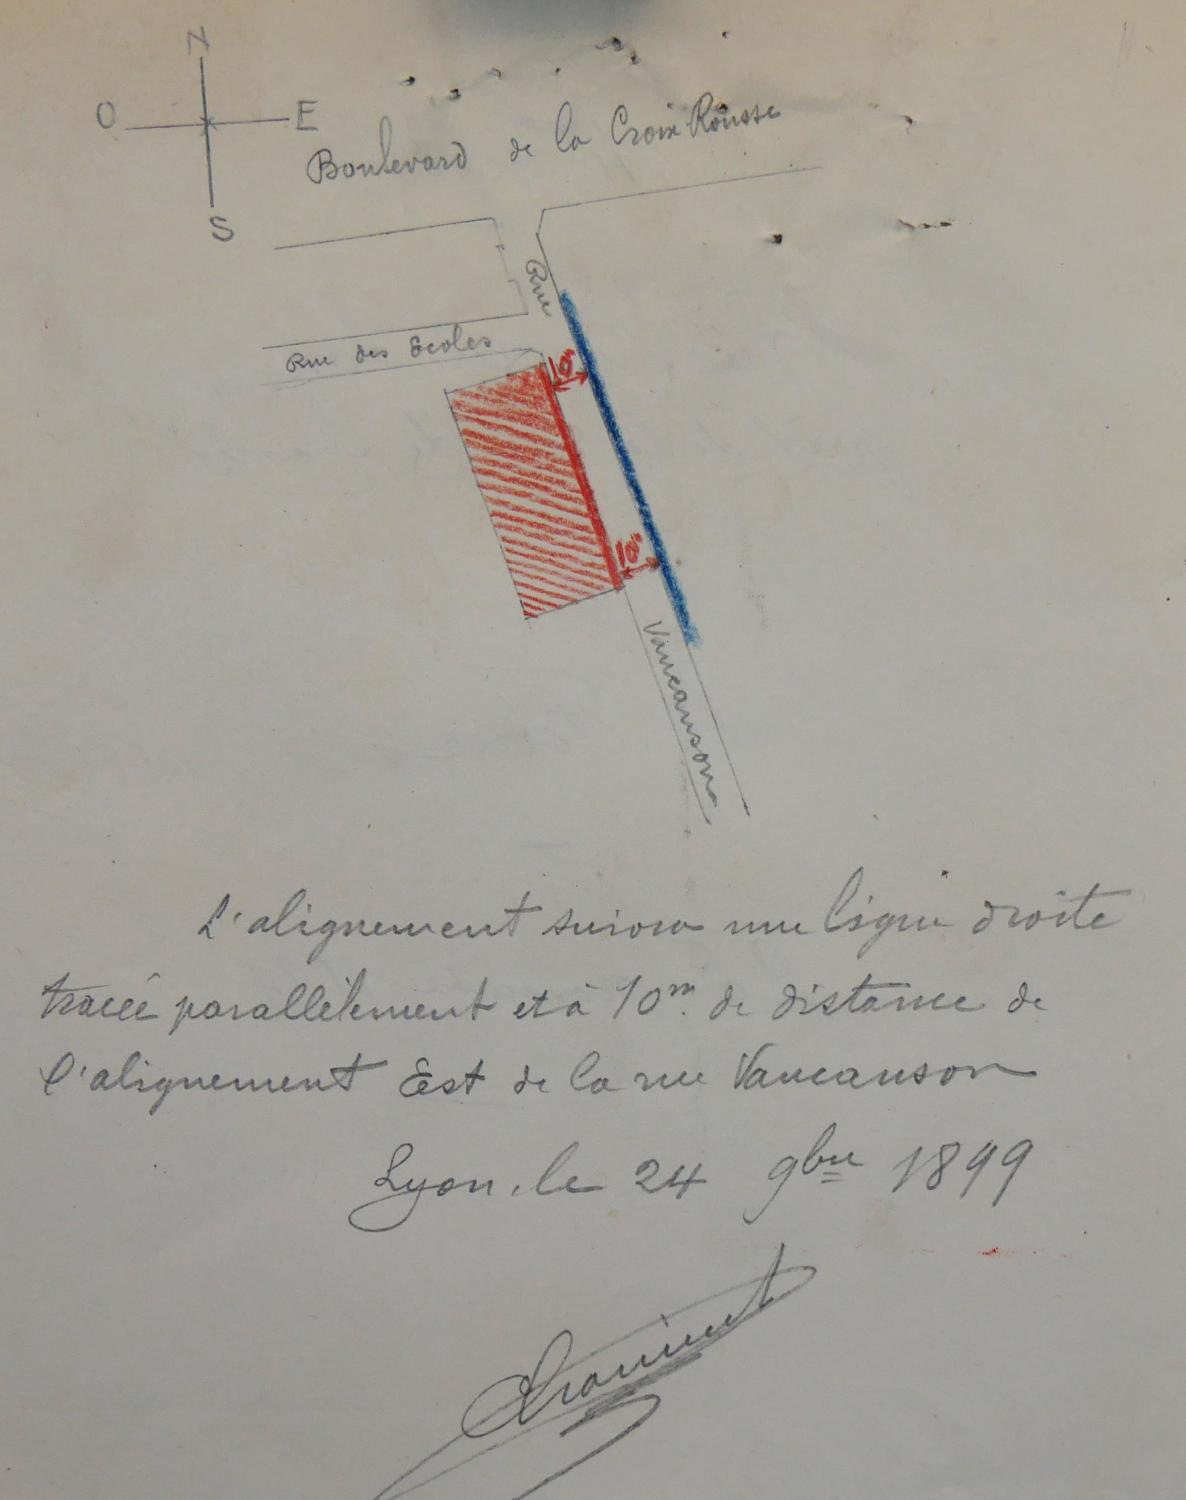 N
O E
S
Boulevard de la Croix Rousse
Rue
Rue des Ecoles
10m
10m
Vaucanson
L'alignement suivra une ligne droite
tracée parallèlement et à 10m. de distance de
l'alignement Est de la rue Vaucanson
Lyon, le 24 9bre 1899